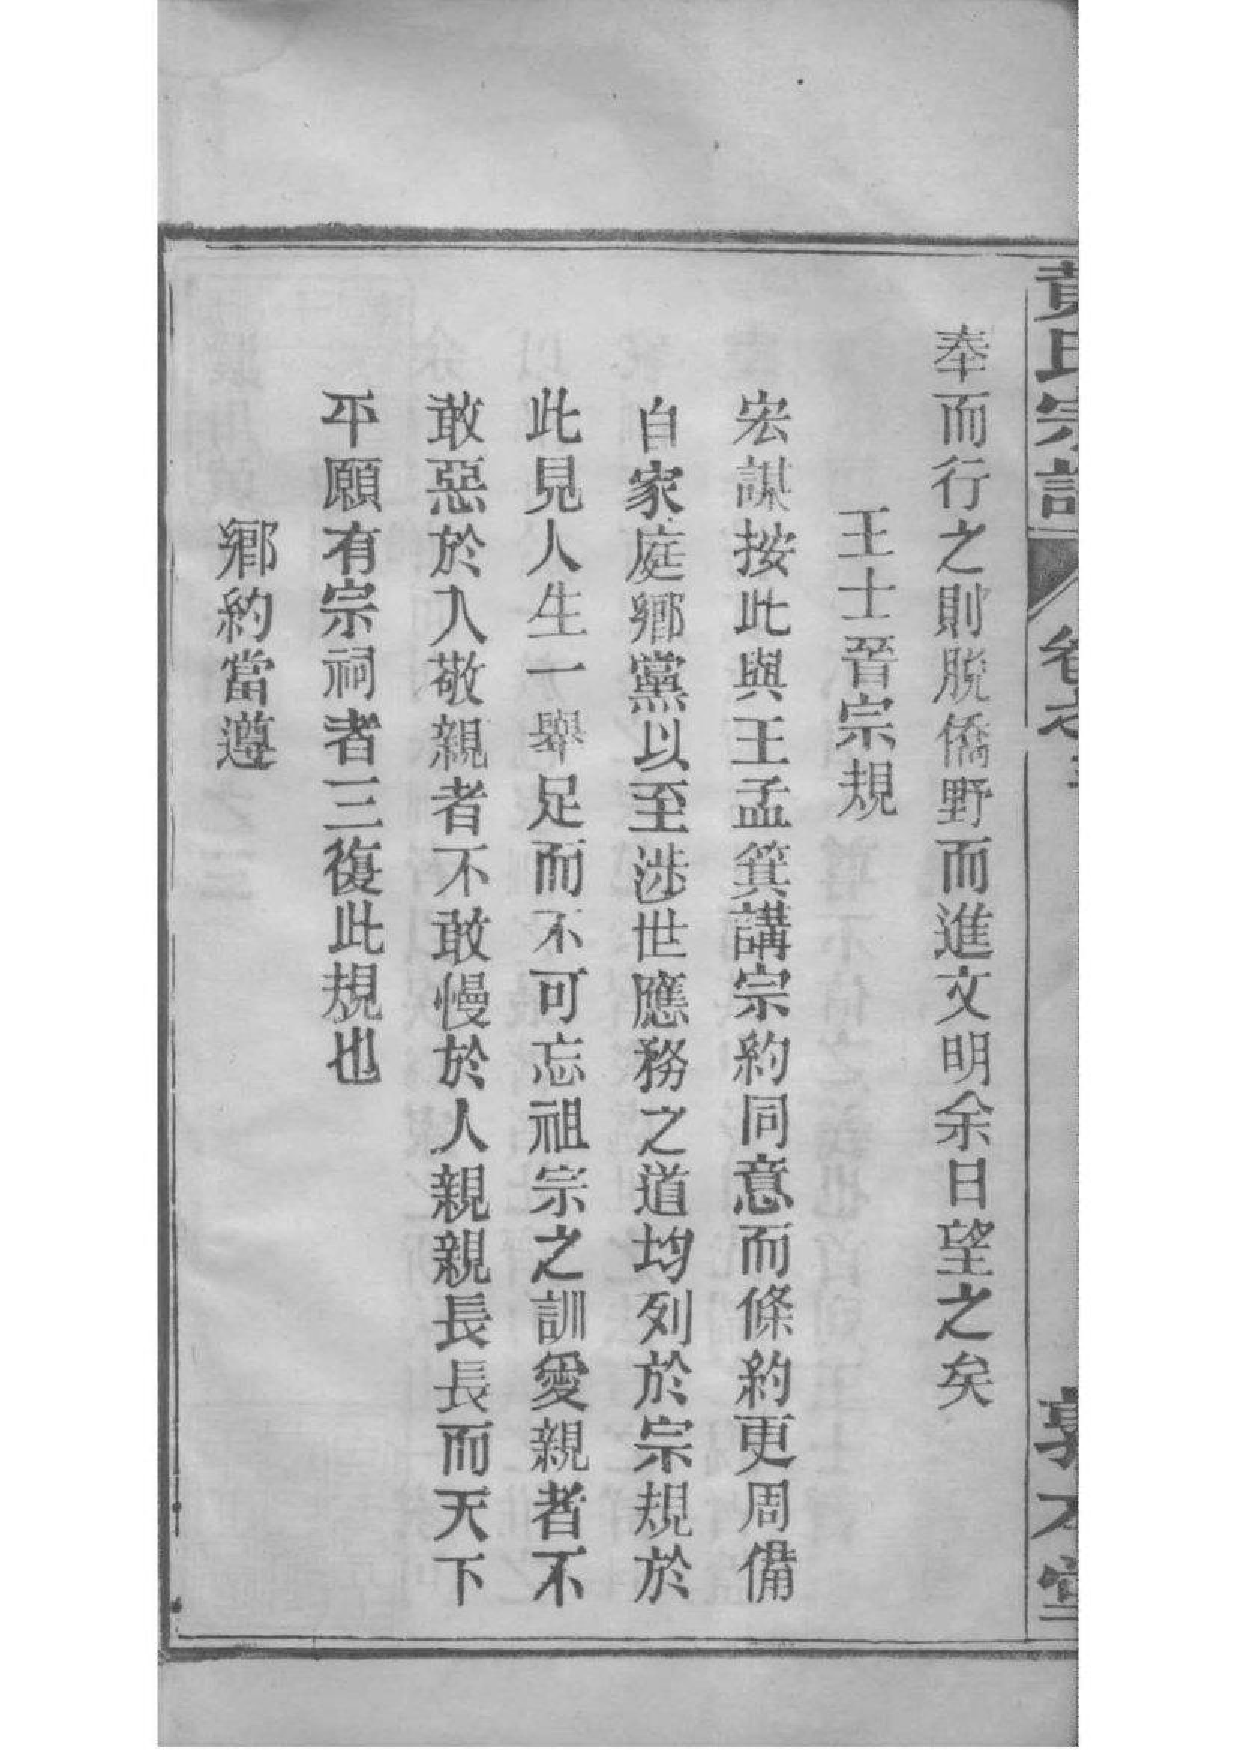 黄氏宗譜
卷之
敦本堂
奉而行之則脫僑野而進文明余日望之矣
王士晉宗規
宏謀按此與王孟箕講宗約同意而條約更周備
自家庭鄉黨以至涉世應務之道均列於宗規於
此見人生一舉足而不可忘祖宗之訓愛親者不
敢惡於人敬親者不敢慢於人親親長長而天下
平願有宗祠者三復此規也
鄉約當遵